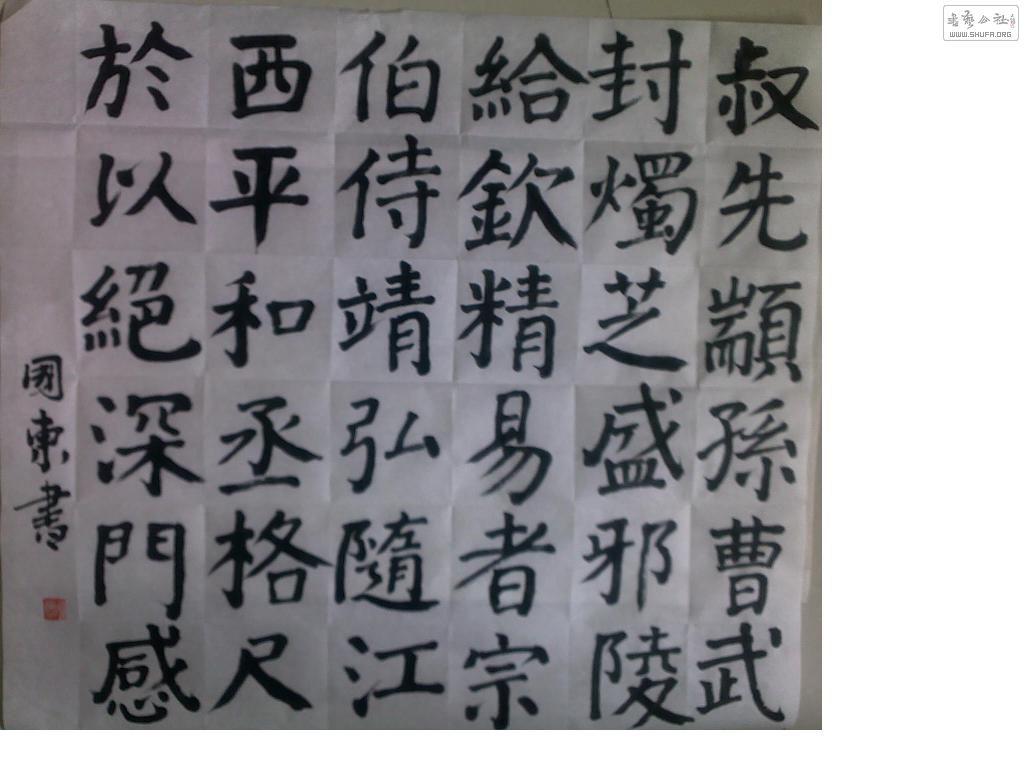 叔先顓孫曹武
封燭芝盛邪陵
給欽精易者宗
伯侍靖弘隨江
西平和丞格尺
於以絕深門感
國東書
书艺公社
WWW.SHUFA.ORG